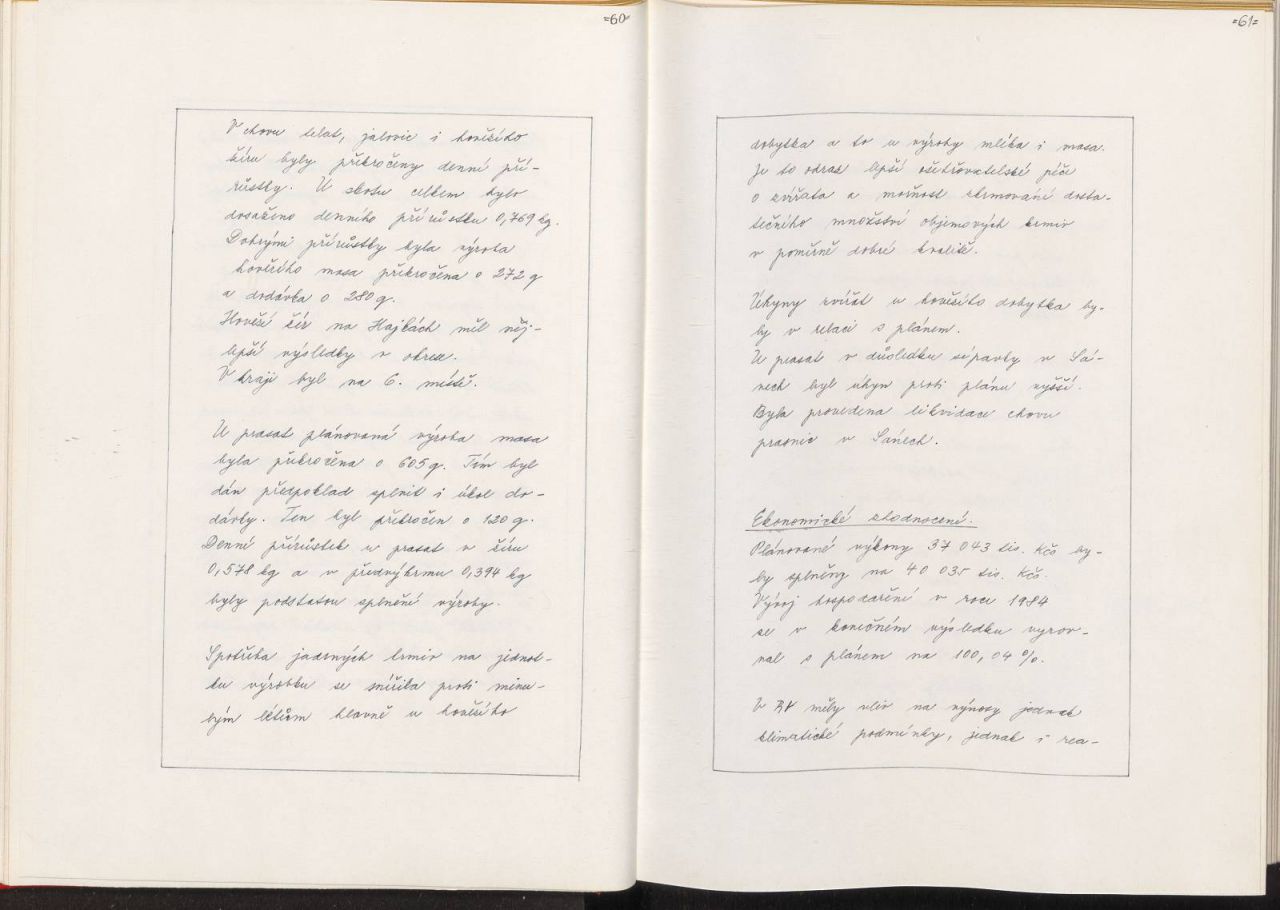 =60=
V chovu telat, jalovic i hovězího
žíru byly překročeny denní pří-
růstky. U skotu celkem bylo
dosaženo denního přírůstku 0,769 kg.
Dobrými přírůstky byla výroba
hovězího masa překročena o 272 q
a dodávka o 280 q.
Hovězí žír na Hajkách měl nej-
lepší výsledky v okrese.
V kraji byl na 6. místě.
U prasat plánovaná výroba masa
byla překročena o 605 q. Tím byl
dán předpoklad splnit i úkol do-
dávky. Ten byl překročen o 120 q.
Denní přírůstek u prasat v žíru
0,578 kg a v předvýkrmu 0,394 kg
byly podstatou splnění výroby.
Spotřeba jaderných krmiv na jednot-
ku výrobku se snížila proti minu-
lým létům hlavně u hovězího
=61=
dobytka a to u výroby mléka i masa.
Je to odraz lepší ošetřovatelské péče
o zvířata a možnost zkrmování dosta-
tečného množství objemových krmiv
v poměrně dobré kvalitě.
Úhyny zvířat u hovězího dobytka by-
ly v relaci s plánem.
U prasat v důsledku sípavky v Sá-
nech byl úhyn proti plánu vyšší.
Byla provedena likvidace chovu
prasnic v Sánech.
Ekonomické zhodnocení.
Plánované výkony 37 043 tis. Kčs by-
ly splněny na 40 035 tis. Kčs.
Vývoj hospodaření v roce 1984
se v konečném výsledku vyrov-
nal s plánem na 100,04 %.
V RV měly vliv na výnosy jednak
klimatické podmínky, jednak i rea-